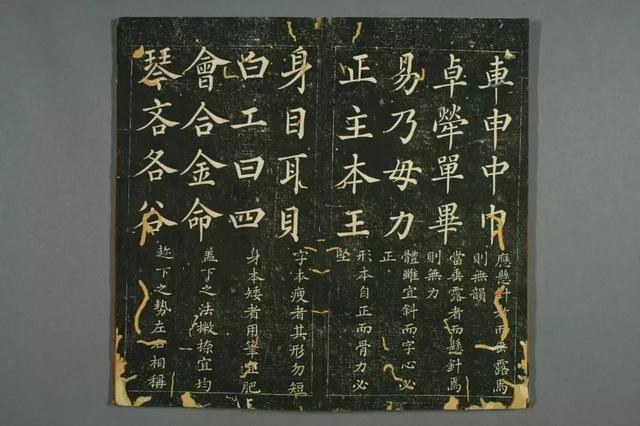 車申中巾
應懸針者而垂露焉
則無韻
卓犖單畢
當垂露者而懸針焉
則無力
易乃毋力
體雖宜斜而字心必
正
正主本王
形本自正而骨力必
堅
身目耳貝
字本瘦者其形勿短
白工曰四
身本矮者用筆宜肥
會合金命
蓋下之法撇捺宜均
琴吝各谷
趂下之勢左右相稱